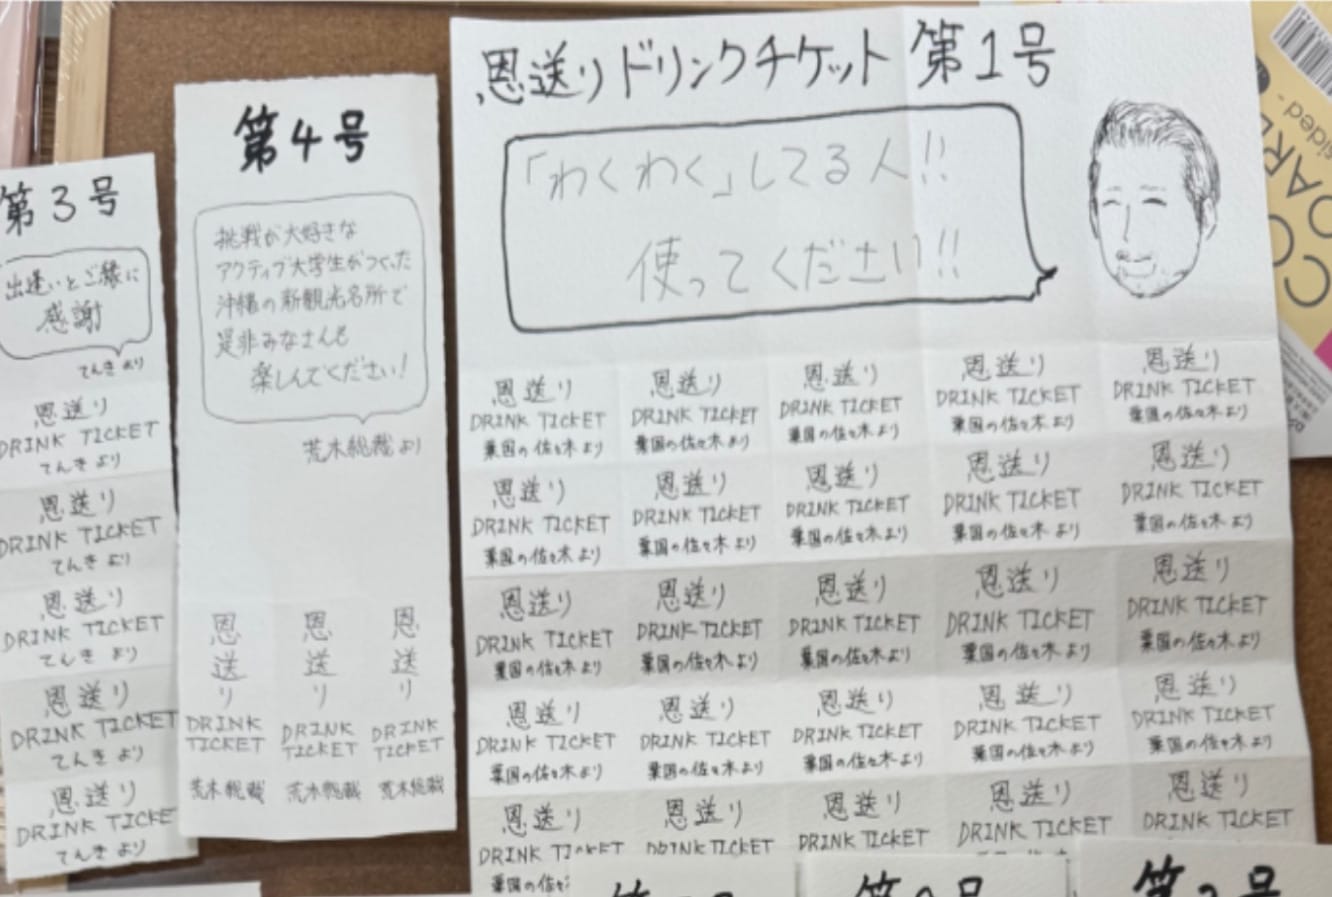 第3号
出逢いとご縁に
感謝
てんき より
恩送り
DRINK TICKET
てんき より
恩送り
DRINK TICKET
てんき より
恩送り
DRINK TICKET
てんき より
恩送り
DRINK TICKET
てんき より
恩送り
DRINK TICKE
てんき より
第4号
挑戦が大好きな
アクティブ大学生がつくった
沖縄の新観光名所で
是非みなさんも
楽しんでください!
荒木総裁 より
恩送り 恩送り 恩送り
DRINK DRINK DRINK
TICKET TICKET TICKET
荒木総裁 荒木総裁 荒木総裁
恩送りドリンクチケット 第1号
「わくわく」してる人!!
使ってください!!
恩送り 恩送り 恩送り 恩送り 恩送り
DRINK TICKET DRINK TICKET DRINK TICKET DRINK TICKET DRINK TICKET
粟国の佐々木より 粟国の佐々木より 粟国の佐々木より 粟国の佐々木より 粟国の佐々木より
恩送り 恩送り 恩送り 恩送り 恩送り
DRINK TICKET DRINK TICKET DRINK TICKET DRINK TICKET DRINK TICKET
粟国の佐々木より 粟国の佐々木より 粟国の佐々木より 粟国の佐々木より 粟国の佐々木より
恩送り 恩送り 恩送り 恩送り 恩送り
DRINK TICKET DRINK TICKET DRINK TICKET DRINK TICKET DRINK TICKET
粟国の佐々木より 粟国の佐々木より 粟国の佐々木より 粟国の佐々木より 粟国の佐々木より
恩送り 恩送り 恩送り 恩送り 恩送り
DRINK TICKET DRINK TICKET DRINK TICKET DRINK TICKET DRINK TICKET
粟国の佐々木より 粟国の佐々木より 粟国の佐々木より 粟国の佐々木より 粟国の佐々木より
恩送り 恩送り 恩送り 恩送り 恩送り
DRINK TICKET DRINK TICKET DRINK TICKET DRINK TICKET DRINK TICKET
粟国の佐々
sided